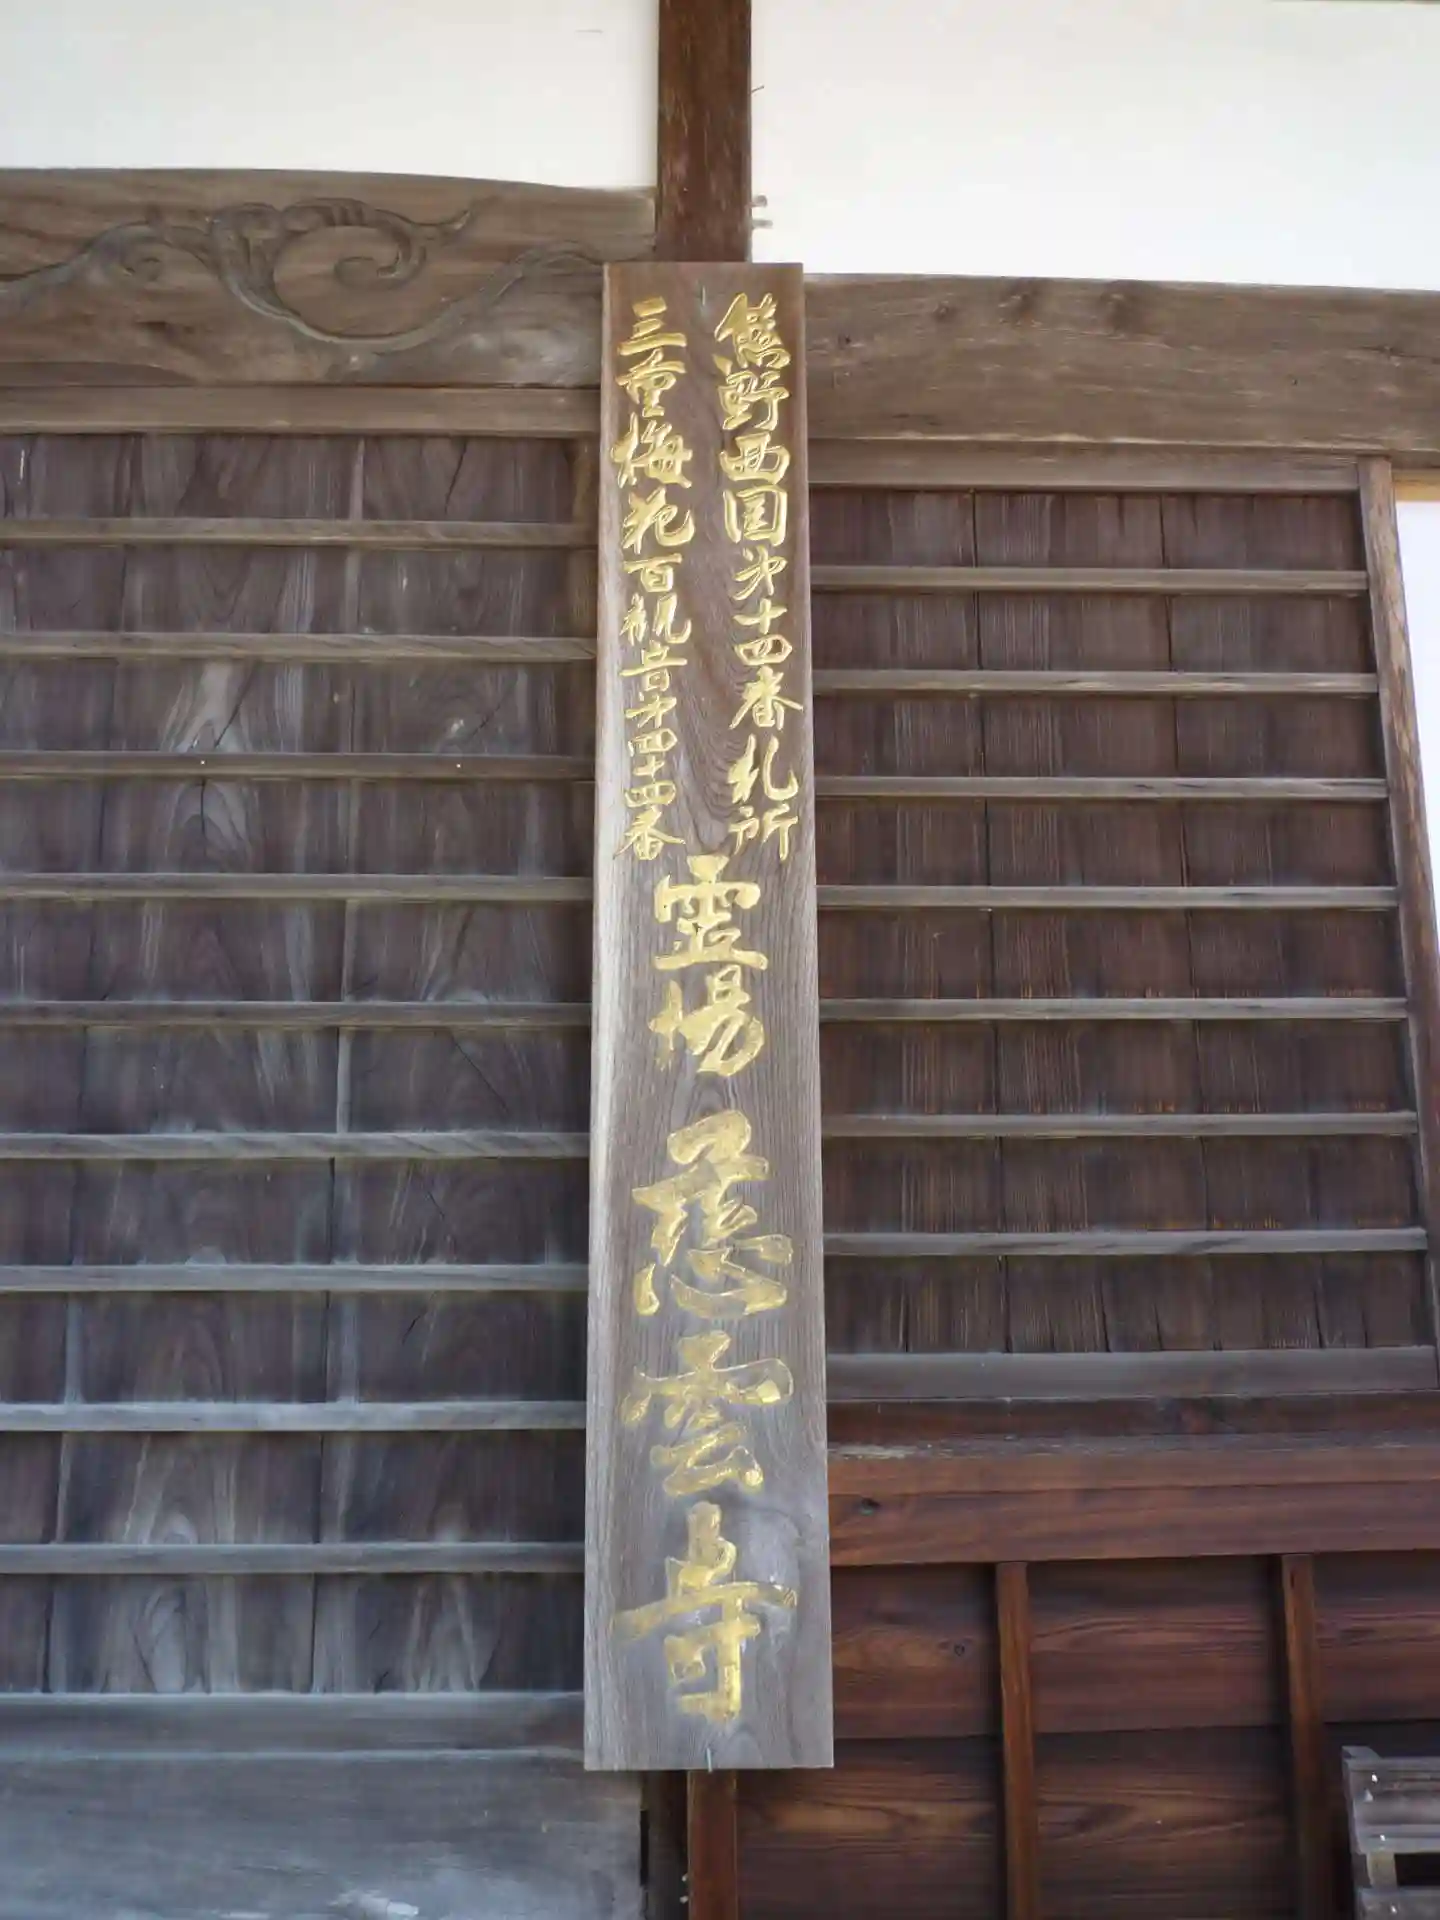 熊野西国第十四番札所
三重梅花百観音第四十四番
霊場 慈雲寺